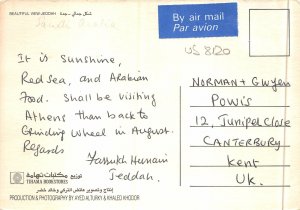 BEAUTIFUL VIEW JEDDAH شكل جمالي - جدة
Saudi Arabia
By air mail
Par avion
US 8120
It is Sunshine,
Red Sea, and Arabian
Food. Shall be visiting
Athens than back to
Grinding wheel in August.
Regards
Farrukh Hussain
Jeddah.
NORMAN + Gwyen
Powis
12, Juniper Close
CANTERBURY
Kent
UK.
توزيع مكتبات تهامة
TIHAMA BOOKSTORES
إنتاج وتصوير عائض التركي وخالد خضر
PRODUCTION & PHOTOGRAPHY BY AYED ALTURKY & KHALED KHODOR